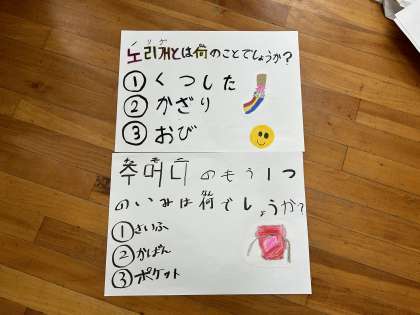 노리개とは何のことでしょうか?
① くつした
② かざり
③ おび
주머니 のもう1つ
のいみは何でしょうか?
① さいふ
② かばん
③ ポケット